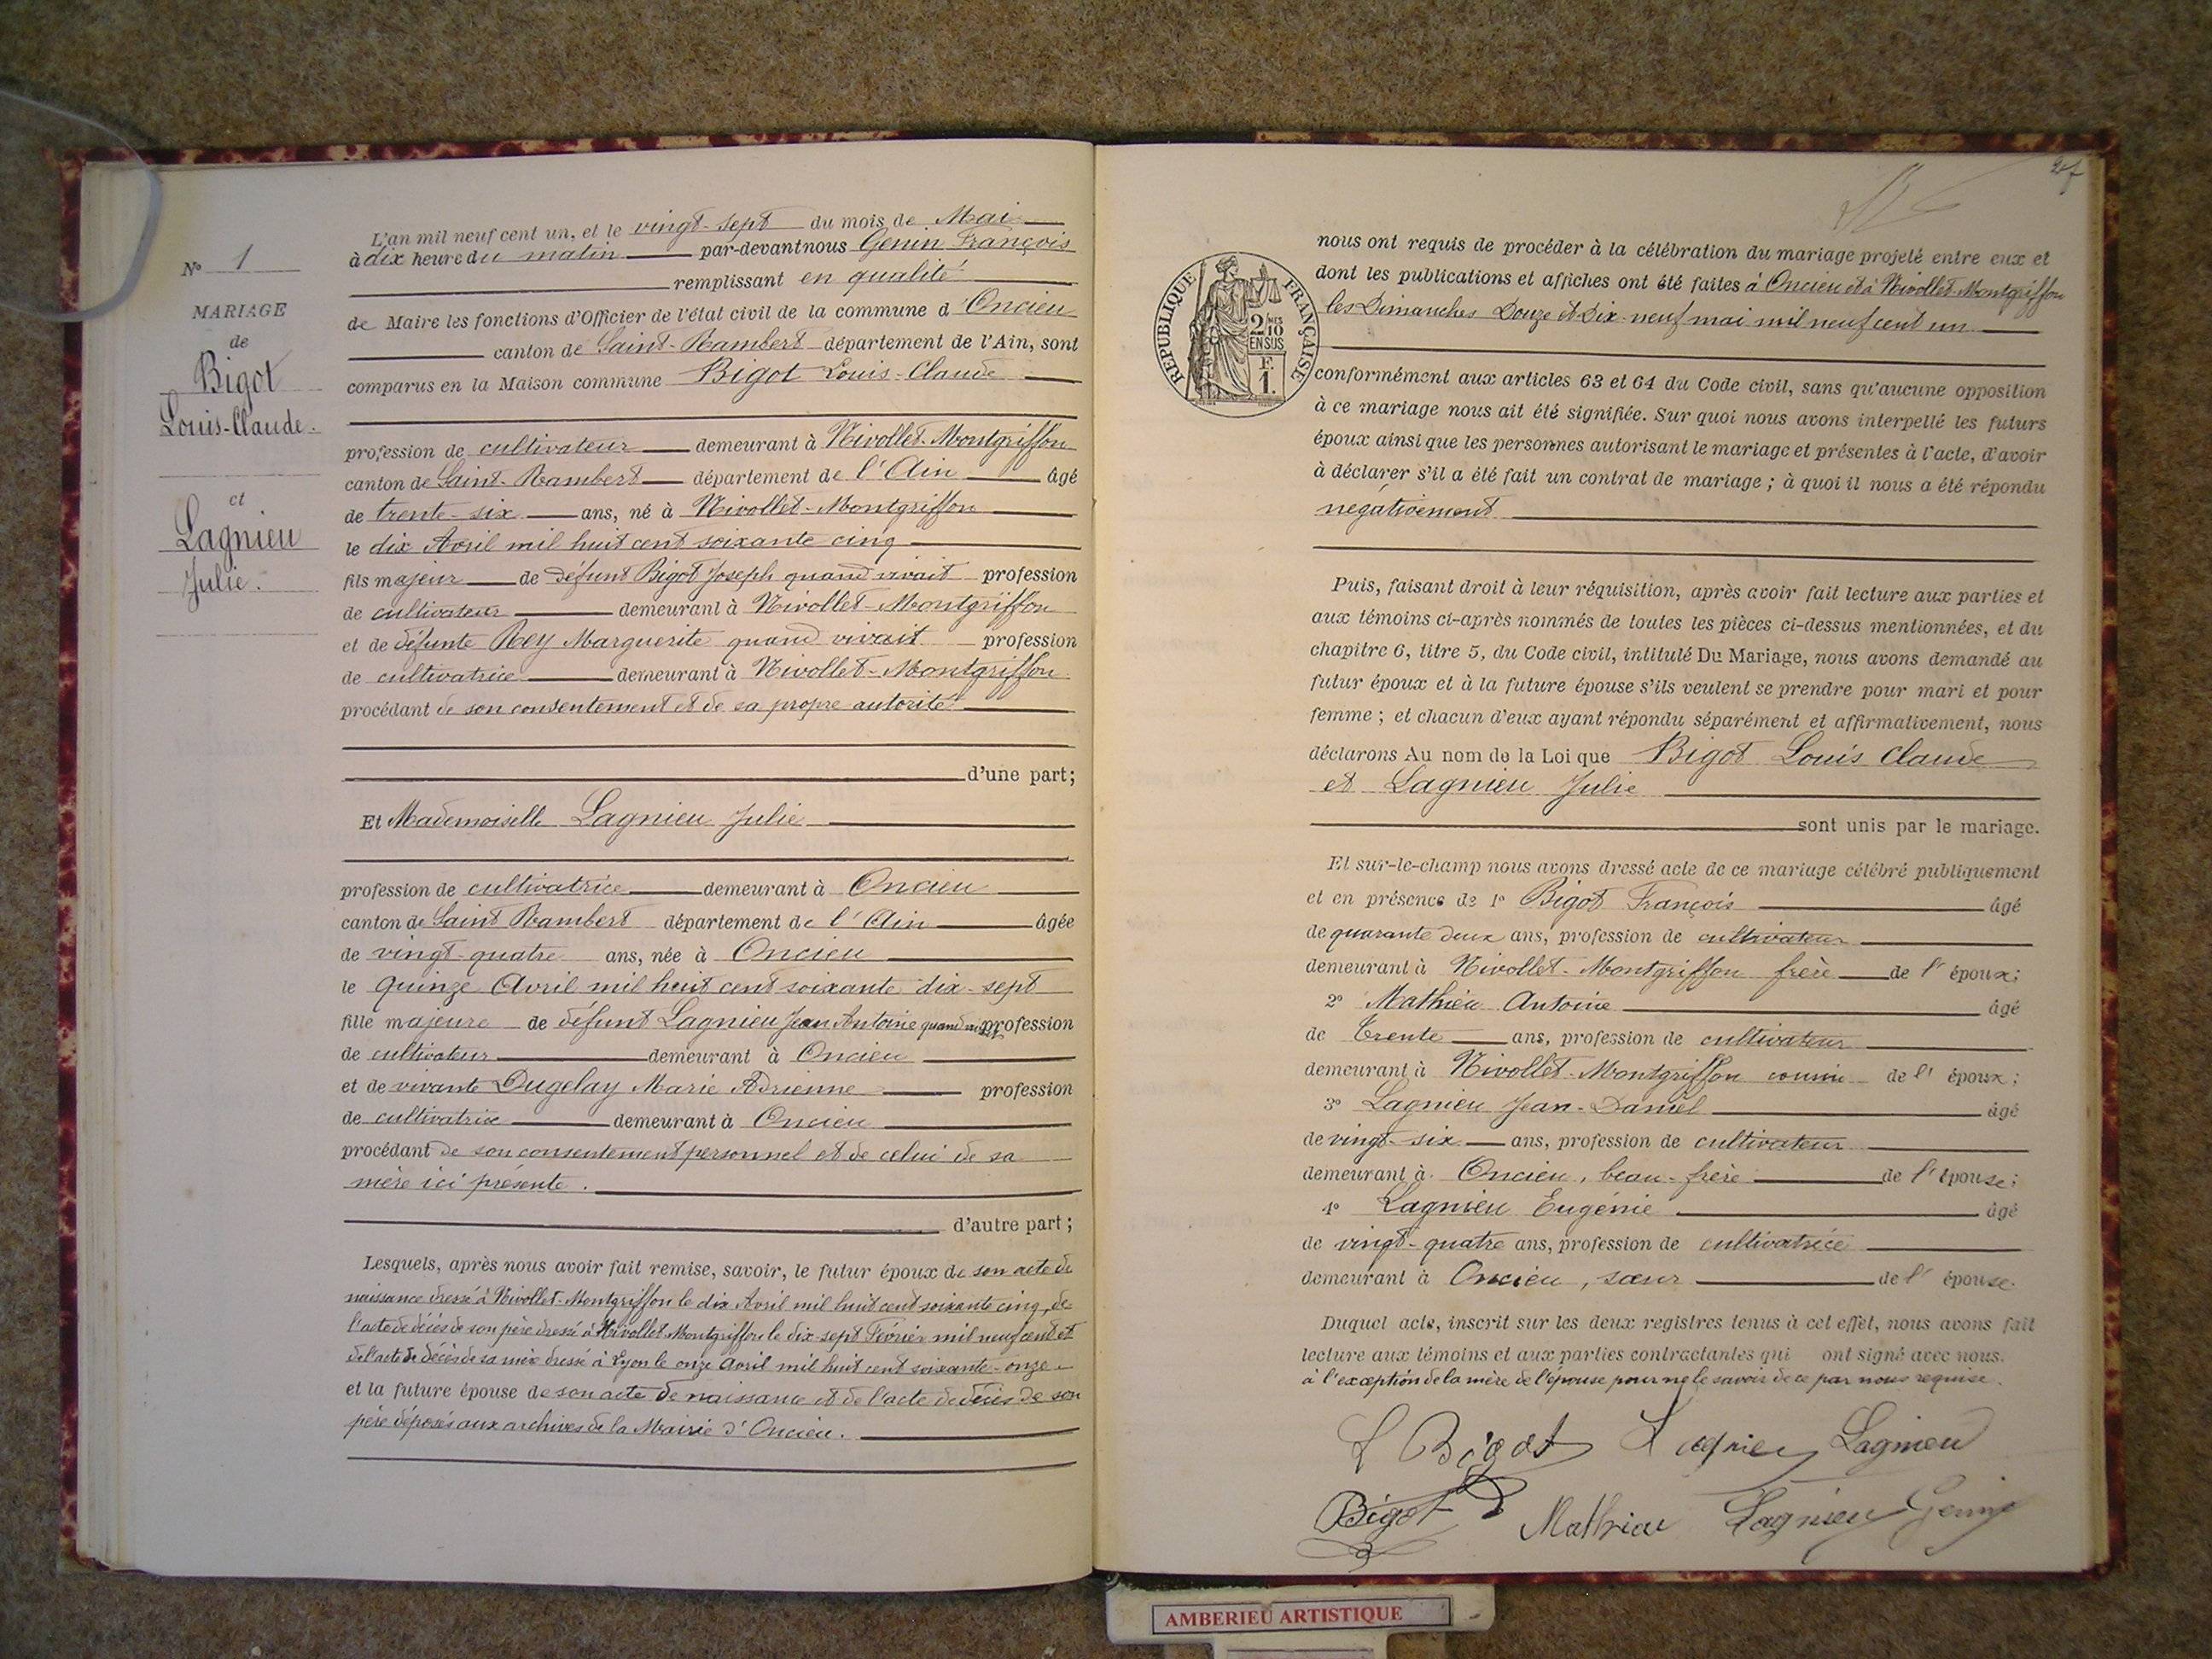 N° 1
MARIAGE
de
Bigot
Louis-Claude.
et
Lagnieu
Julie.
L'an mil neuf cent un, et le vingt-sept du mois de Mai
à dix heure du matin par-devant nous Genin François
remplissant en qualité
de Maire les fonctions d'Officier de l'état civil de la commune d'Oncieu
canton de Saint-Rambert département de l'Ain, sont
comparus en la Maison commune Bigot Louis-Claude
profession de cultivateur demeurant à Nivollet-Montgriffon
canton de Saint-Rambert département de l'Ain âgé
de trente-six ans, né à Nivollet-Montgriffon
le dix Avril mil huit cent soixante cinq
fils majeur de défunt Bigot Joseph quand vivait profession
de cultivateur demeurant à Nivollet-Montgriffon
et de défunte Rey Marguerite quand vivait profession
de cultivatrice demeurant à Nivollet-Montgriffon
procédant de son consentement et de sa propre autorité
d'une part;
Et Mademoiselle Lagnieu Julie
profession de cultivatrice demeurant à Oncieu
canton de Saint Rambert département de l'Ain âgée
de vingt-quatre ans, née à Oncieu
le quinze Avril mil huit cent soixante dix-sept
fille majeure de défunt Lagnieu Jean Antoine quand vivait profession
de cultivateur demeurant à Oncieu
et de vivante Dugelay Marie Adrienne profession
de cultivatrice demeurant à Oncieu
procédant de son consentement personnel et de celui de sa
mère ici présente.
d'autre part;
Lesquels, après nous avoir fait remise, savoir, le futur époux de son acte de
naissance dressé à Nivollet-Montgriffon le dix Avril mil huit cent soixante cinq, de
l'acte de décès de son père dressé à Nivollet Montgriffon le dix-sept Février mil neuf cent et
de l'acte de décès de sa mère dressé à Lyon le onze Avril mil huit cent soixante-onze
et la future épouse de son acte de naissance et de l'acte de décès de son
père déposés aux archives de la Mairie d'Oncieu.
REPUBLIQUE FRANÇAISE
2/10 MES
EN SUS
F.
1.
nous ont requis de procéder à la célébration du mariage projeté entre eux et
dont les publications et affiches ont été faites à Oncieu et à Nivollet-Montgriffon
les Dimanches Douze et Dix-neuf mai mil neuf cent un
conformément aux articles 63 et 64 du Code civil, sans qu'aucune opposition
à ce mariage nous ait été signifiée. Sur quoi nous avons interpellé les futurs
époux ainsi que les personnes autorisant le mariage et présentes à l'acte, d'avoir
à déclarer s'il a été fait un contrat de mariage; à quoi il nous a été répondu
négativement
Puis, faisant droit à leur réquisition, après avoir fait lecture aux parties et
aux témoins ci-après nommés de toutes les pièces ci-dessus mentionnées, et du
chapitre 6, titre 5, du Code civil, intitulé Du Mariage, nous avons demandé au
futur époux et à la future épouse s'ils veulent se prendre pour mari et pour
femme; et chacun d'eux ayant répondu séparément et affirmativement, nous
déclarons Au nom de la Loi que Bigot Louis Claude
et Lagnieu Julie
sont unis par le mariage.
Et sur-le-champ nous avons dressé acte de ce mariage célébré publiquement
et en présence de 1° Bigot François âgé
de quarante deux ans, profession de cultivateur
demeurant à Nivollet-Montgriffon frère de l'époux;
2° Mathieu Antoine âgé
de trente ans, profession de cultivateur
demeurant à Nivollet-Montgriffon cousin de l'époux;
3° Lagnieu Jean-Daniel âgé
de vingt-six ans, profession de cultivateur
demeurant à Oncieu, beau-frère de l'épouse;
4° Lagnieu Eugénie âgé
de vingt-quatre ans, profession de cultivatrice
demeurant à Oncieu, sœur de l'épouse.
Duquel acte, inscrit sur les deux registres tenus à cet effet, nous avons fait
lecture aux témoins et aux parties contractantes qui ont signé avec nous.
à l'exception de la mère de l'épouse pour ne le savoir de ce par nous requise.
L Bigot Lagnieu Lagnieu
Bigot Mathieu Lagnieu Genin
AMBERIEU ARTISTIQUE